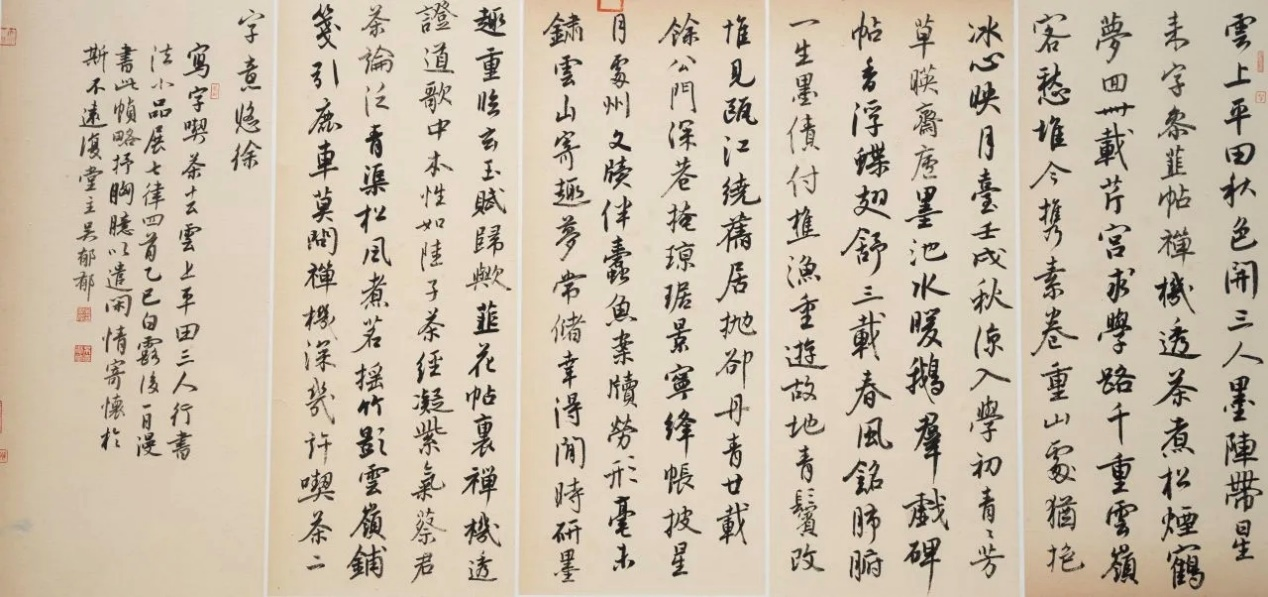 雲上平田秋色開三人墨陣帶星
来字叅韮帖禪機透茶煮松煙鶴
夢回卌載芹宫求學路千重雲嶺
客愁堆今攜素卷重山處猶抱
冰心映月臺壬戌秋涼入學初青〻芳
草暎齋廬墨池水暖鵝羣戲碑
帖香浮蝶翅舒三載春風銘肺腑
一生墨債付樵漁重遊故地青鬢改
惟見甌江繞舊居拋卻丹青廿載
餘公門深巷掩琼琚景寧絳帳披星
月處州文牘伴蠹魚案牘勞形毫未
鏽雲山寄趣夢常儲幸得閒時研墨
趣重臨玄玉賦歸歟韮花帖裏禪機透
證道歌中本性如陸子茶經凝紫氣蔡君
茶論泛青渠松風煮茗摇竹影雲嶺鋪
箋引鹿車莫問禪機深幾許喫茶二
字意悠徐
寫字喫茶去雲上平田三人行書
法小品展七律四首乙巳白露後一日漫
書此幀略抒胸臆以遣閑情寄懷於
斯不遠復堂主吴郁郁